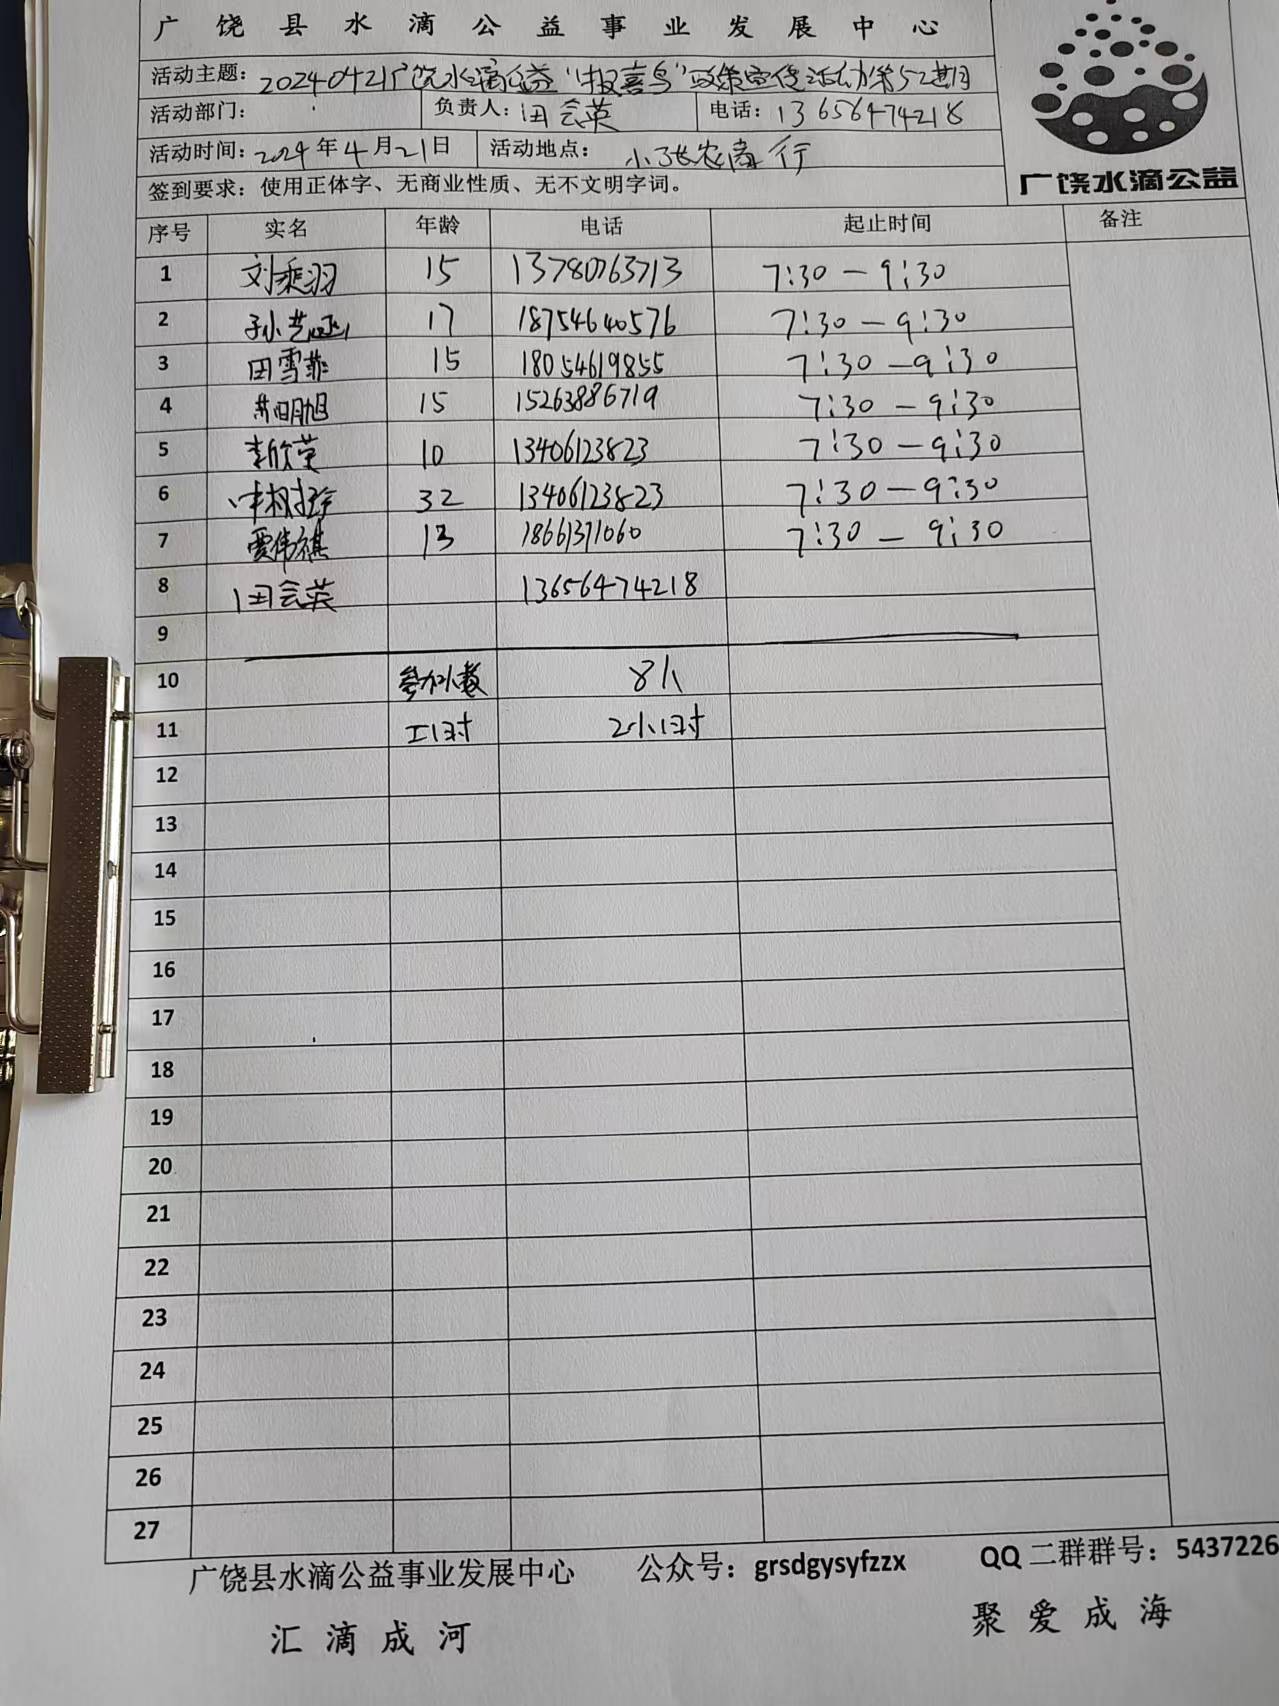 广饶县水滴公益事业发展中心
活动主题：20240421广饶水滴公益“报喜鸟”政策宣传活动第52期
活动部门： 负责人：田会英 电话：13656474218
活动时间：2024年4月21日 活动地点：小张农商行
签到要求：使用正体字、无商业性质、无不文明字词。
广饶水滴公益
序号 实名 年龄 电话 起止时间 备注
1 刘乘羽 15 13780763713 7:30-9:30
2 孙艺涵 17 18754640576 7:30-9:30
3 田雪菲 15 18054619855 7:30-9:30
4 15 15263886719 7:30-9:30
5 李欣莹 10 13406123823 7:30-9:30
6 32 13406123823 7:30-9:30
7 贾伟祺 13 18661371060 7:30-9:30
8 田会英 13656474218
9
10 参加人数 8人
11 工时 2小时
12
13
14
15
16
17
18
19
20
21
22
23
24
25
26
27
广饶县水滴公益事业发展中心 公众号：grsdgysyfzzx QQ二群群号：5437226
汇滴成河 聚爱成海